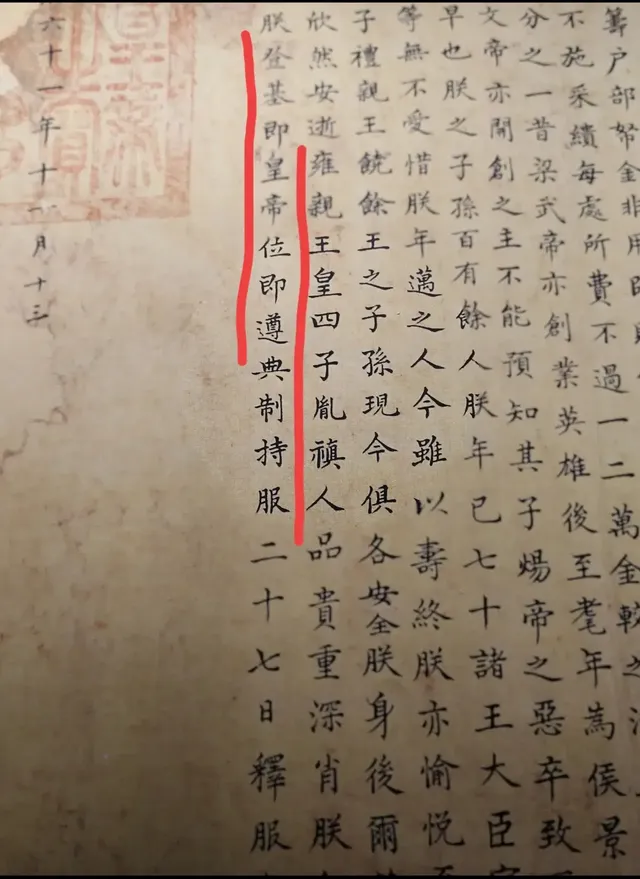 籌户部帑金非用師
不施采績每處所費不過一二萬金較之
分之一昔梁武帝亦創業英雄後至耄年為侯景
文帝亦開創之主不能預知其子煬帝之惡卒致
早也朕之子孫百有餘人朕年已七十諸王大臣
等無不愛惜朕年邁之人今雖以壽終朕亦愉悅
子禮親王饒餘王之子孫現今俱各安全朕身後爾
欣然安逝雍親王皇四子胤禛人品貴重深肖朕
朕登基即皇帝位即遵典制持服二十七日釋服
六十一年十一月十三